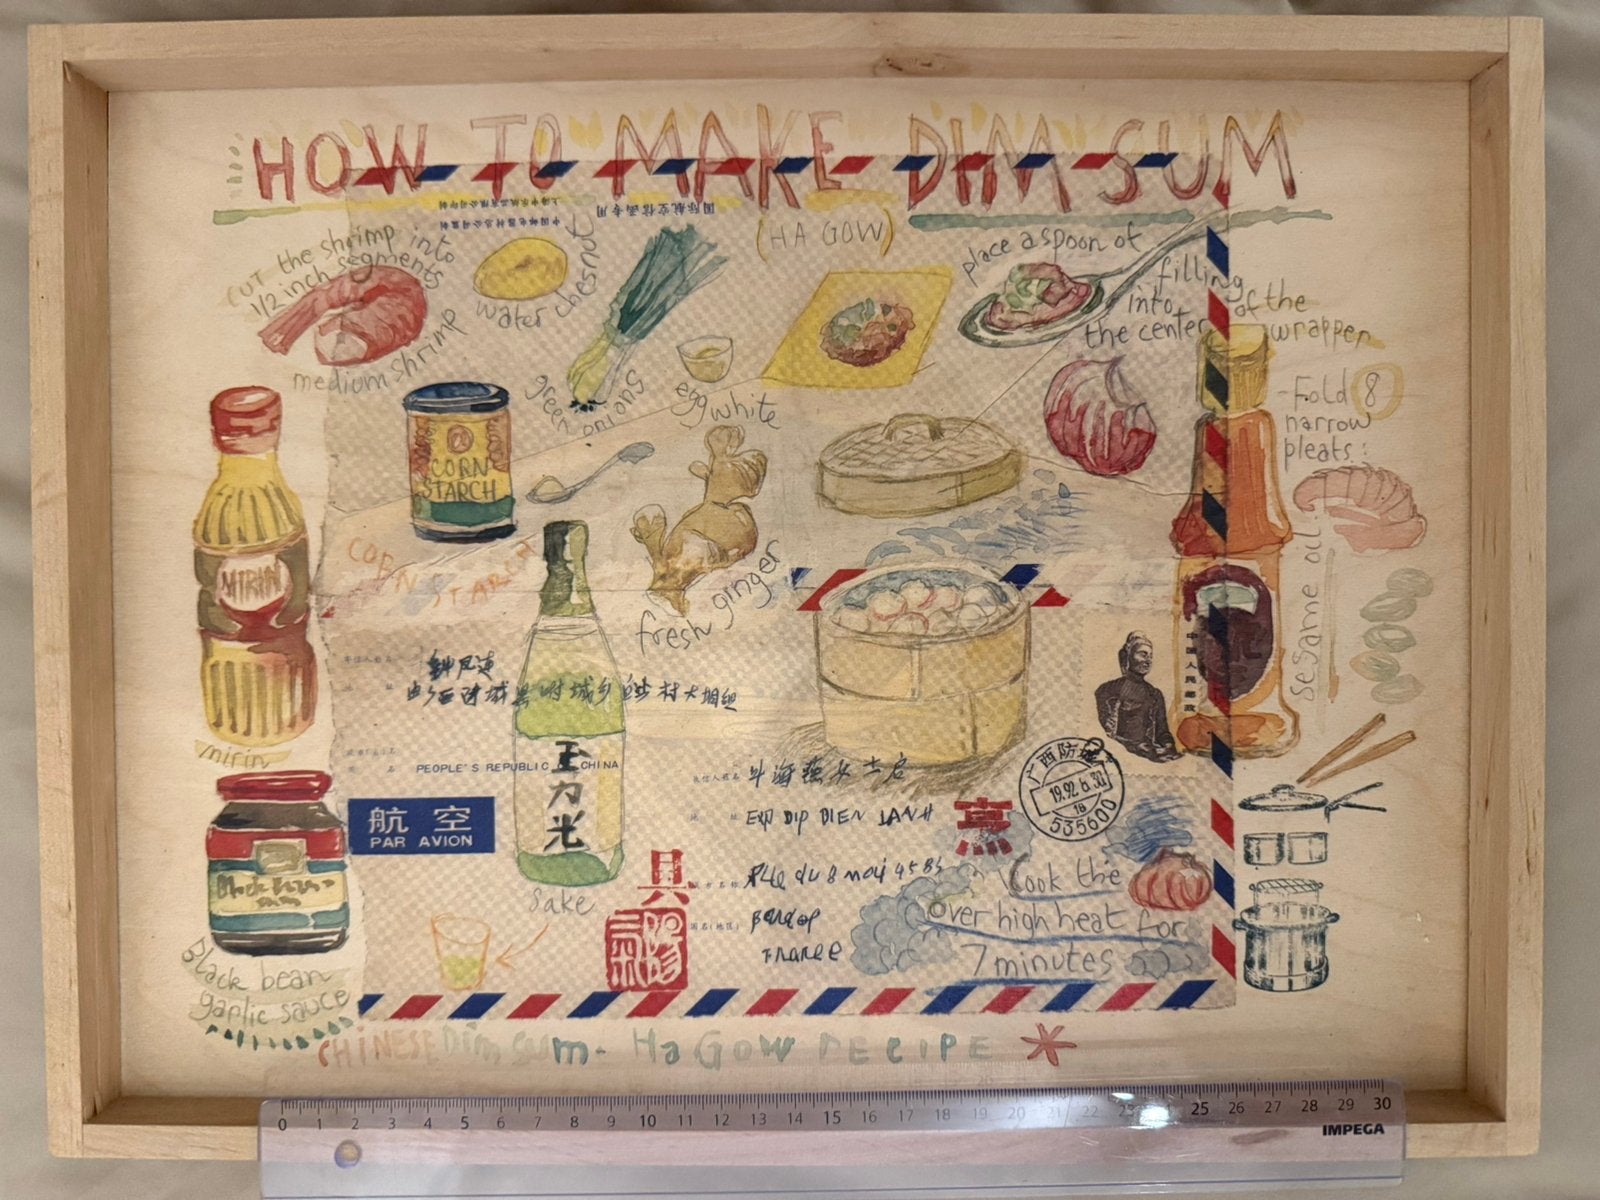 HOW TO MAKE DIM SUM
(HA GOW)
国际航空信函专用
cut the shrimp into
1/2 inch segments
medium shrimp
water chesnut
green onions
egg white
place a spoon of
filling
into
the center
of the
wrapper
- Fold 8
narrow
pleats:
CORN
STARCH
CORN STARCH
fresh ginger
MIRIN
mirin
sesame oil
中国人民邮政
PEOPLE'S REPUBLIC OF CHINA
航空
PAR AVION
玉力光
Sake
EXP DIP DIEN LANH
Rue du 8 mai 45 B5
France
广西防城
1992.6.30
18
535600
烹
具
Cook the
over high heat for
7 minutes
Black bean
garlic sauce
CHINESE Dim Sum - Ha GOW RECIPE *
0 1 2 3 4 5 6 7 8 9 10 11 12 13 14 15 16 17 18 19 20 21 22 23 24 25 26 27 28 29 30
IMPEGA